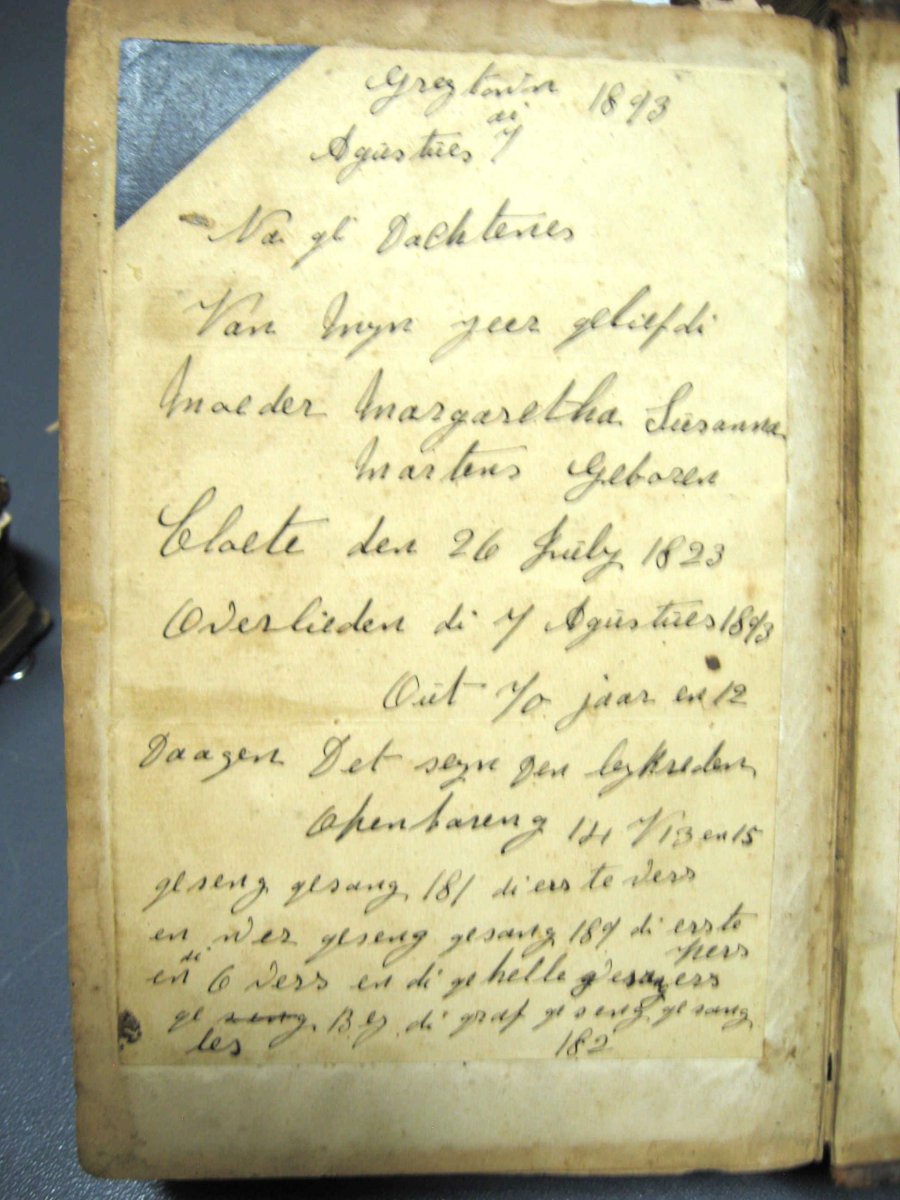 Greytown 1893
di
Agüstües 7
Na gi Dachtenes
Van Myn zeer geliefdi
Moeder Margaretha Süsanna
Martens Geboren
Cloete den 26 Jüly 1823
Overlieden di 7 Agüstües 1893
Oüt 70 jaar en 12
Daagen Det seyn den lykreden
Openbareng 14 V 13 en 15
geseng gesang 181 di erste vers
en wer geseng gesang 189 di erste
vers
di
en 6 vers en di gehelle
ge seng Bey di graf geseng gesang
les 182